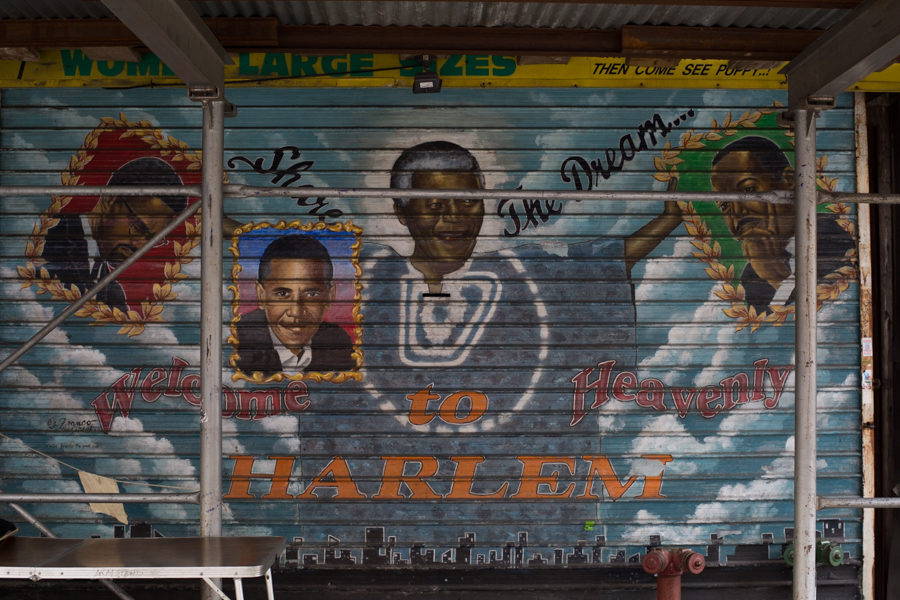 LARGE SIZES
THEN COME SEE PUFFY...
Share The Dream...
Welcome to Heavenly
HARLEM